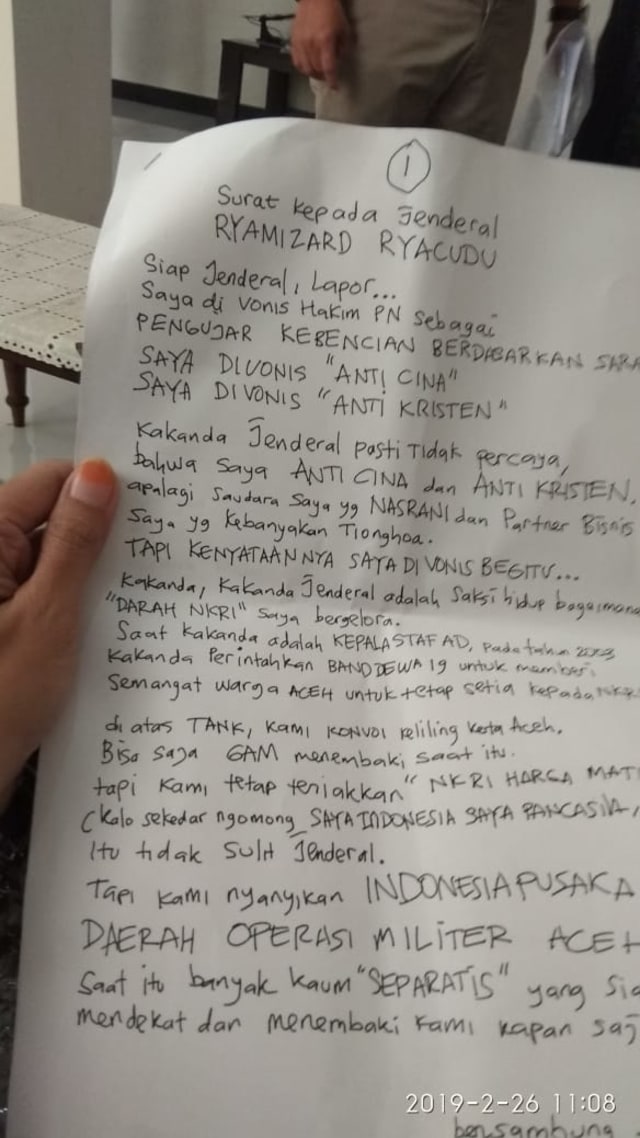 1
Surat kepada Jenderal
RYAMIZARD RYACUDU
Siap Jenderal, Lapor...
Saya di vonis Hakim PN sebagai
PENGUJAR KEBENCIAN BERDASARKAN SARA
SAYA DIVONIS "ANTI CINA"
SAYA DIVONIS "ANTI KRISTEN"
Kakanda Jenderal pasti Tidak percaya,
bahwa saya ANTI CINA dan ANTI KRISTEN,
apalagi saudara saya yg NASRANI dan Partner Bisnis
saya yg kebanyakan Tionghoa.
TAPI KENYATAANNYA SAYA DI VONIS BEGITU...
Kakanda, Kakanda Jenderal adalah saksi hidup bagaimana
"DARAH NKRI" saya bergelora.
Saat kakanda adalah KEPALA STAF AD, pada tahun 2003
Kakanda Perintahkan BAND DEWA 19 untuk memberi
Semangat warga ACEH untuk tetap setia kepada NKRI
di atas TANK, kami KONVOI keliling kota Aceh.
Bisa saja GAM menembaki saat itu.
tapi Kami tetap teriakkan "NKRI HARGA MATI
(kalo sekedar ngomong SAYA INDONESIA SAYA PANCASILA,
itu tidak sulit Jenderal.
Tapi kami nyanyikan INDONESIA PUSAKA
DAERAH OPERASI MILITER ACEH
Saat itu banyak kaum "SEPARATIS" yang sia
mendekat dan menembaki kami kapan saj
bersambung
2019-2-26 11:08